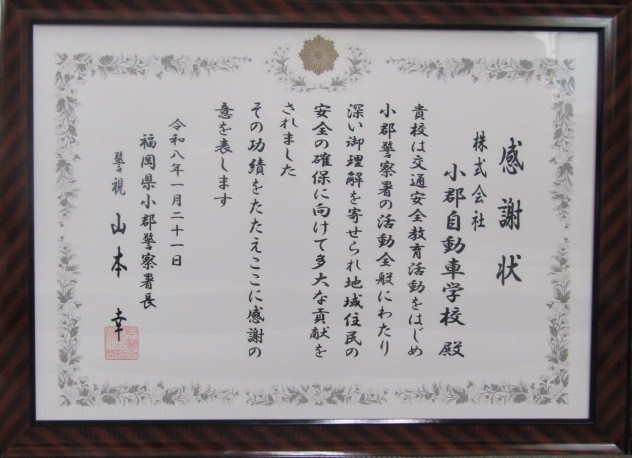 感謝状
株式会社
小郡自動車学校 殿
貴校は交通安全教育活動をはじめ
小郡警察署の活動全般にわたり
深い御理解を寄せられ地域住民の
安全の確保に向けて多大な貢献を
されました
その功績をたたえここに感謝の
意を表します
令和八年一月二十一日
福岡県小郡警察署長
警視 山本 幸